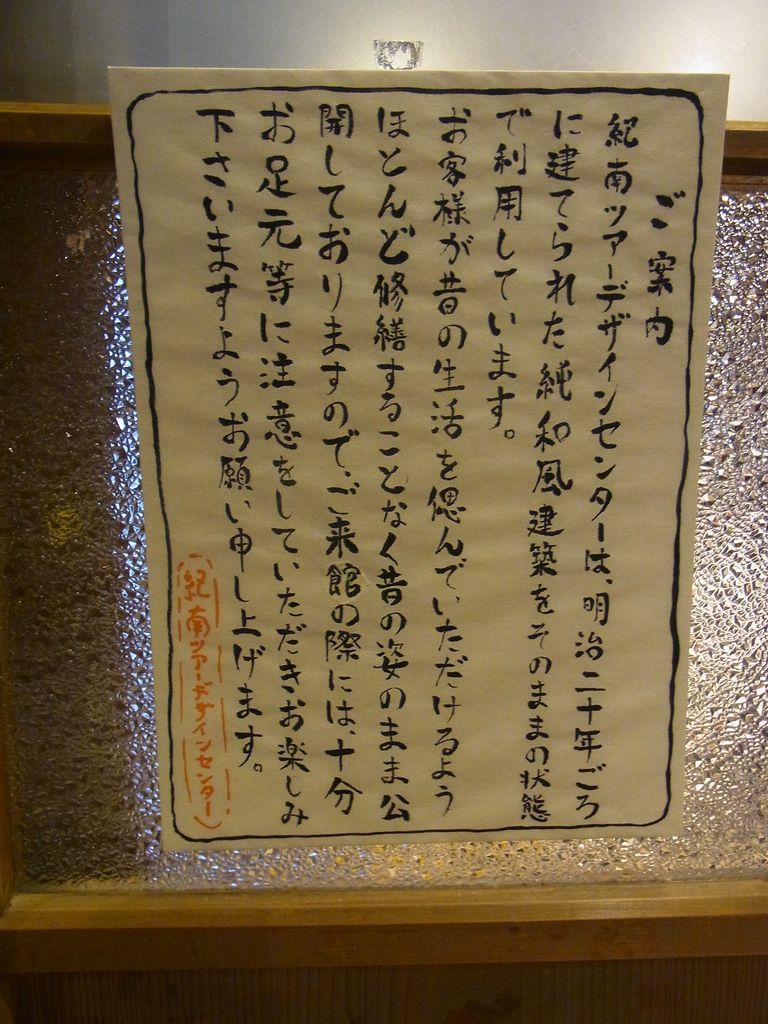 ご案内
紀南ツアーデザインセンターは、明治二十年ごろ
に建てられた純和風建築をそのままの状態
で利用しています。
お客様が昔の生活を偲んでいただけるよう
ほとんど修繕することなく昔の姿のまま公
開しておりますので、ご来館の際には、十分
お足元等に注意をしていただきお楽しみ
下さいますようお願い申し上げます。
(紀南ツアーデザインセンター)